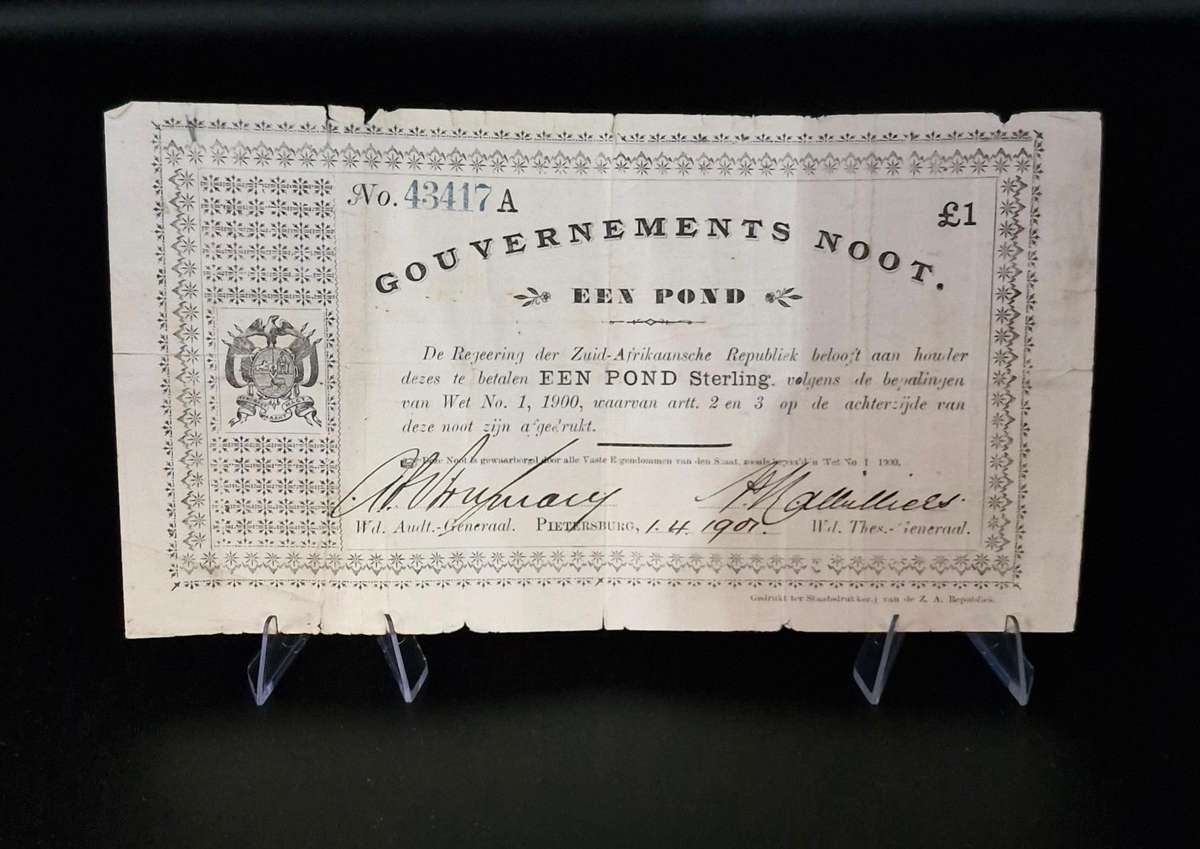 No. 43417 A
£1
GOUVERNEMENTS NOOT.
EEN POND
De Regeering der Zuid-Afrikaansche Republiek belooft aan houder
dezes te betalen EEN POND Sterling. volgens de bepalingen
van Wet No. 1, 1900, waarvan artt. 2 en 3 op de achterzijde van
deze noot zijn afgedrukt.
Deze Noot is gewaarborgd door alle Vaste Eigendommen van den Staat, Wet No 1 1900.
Wd. Audt.-Generaal. PIETERSBURG, 1.4.1901. Wd. Thes.-Generaal.
Gedrukt ter Staatsdrukkerij van de Z. A. Republiek.